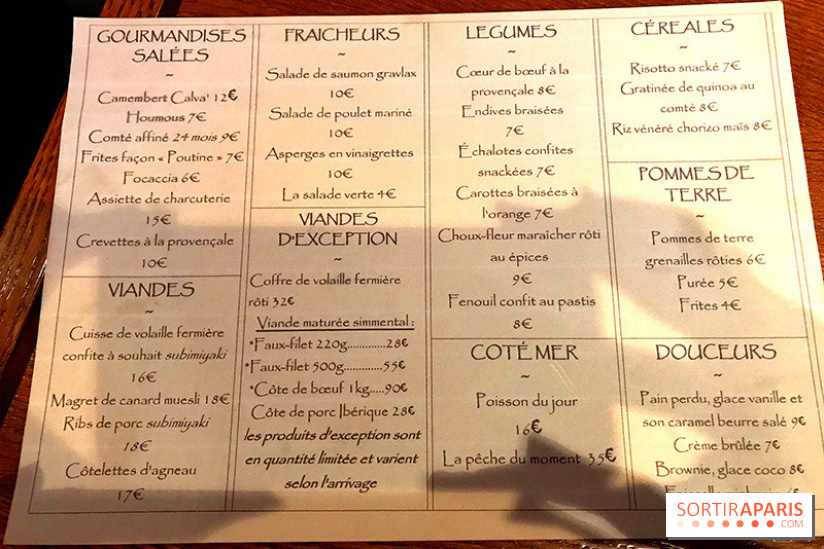 GOURMANDISES
SALÉES
~
Camembert Calva' 12€
Houmous 7€
Comté affiné 24 mois 9€
Frites façon « Poutine » 7€
Focaccia 6€
Assiette de charcuterie
15€
Crevettes à la provençale
10€
VIANDES
~
Cuisse de volaille fermière
confite à souhait subimiyaki
16€
Magret de canard muesli 18€
Ribs de porc subimiyaki
18€
Côtelettes d'agneau
17€
FRAICHEURS
~
Salade de saumon gravlax
10€
Salade de poulet mariné
10€
Asperges en vinaigrettes
10€
La salade verte 4€
VIANDES
D'EXCEPTION
~
Coffre de volaille fermière
rôti 32€
Viande maturée simmental :
*Faux-filet 220g.............28€
*Faux-filet 500g.............55€
*Côte de bœuf 1kg.....90€
Côte de porc Ibérique 28€
les produits d'exception sont
en quantité limitée et varient
selon l'arrivage
LEGUMES
~
Cœur de bœuf à la
provençale 8€
Endives braisées
7€
Échalotes confites
snackées 7€
Carottes braisées à
l'orange 7€
Choux-fleur maraîcher rôti
au épices
9€
Fenouil confit au pastis
8€
COTÉ MER
~
Poisson du jour
16€
La pêche du moment 35€
CÉREALES
~
Risotto snacké 7€
Gratinée de quinoa au
comté 8€
Riz vénéré chorizo maïs 8€
POMMES DE
TERRE
~
Pommes de terre
grenailles rôties 6€
Purée 5€
Frites 4€
DOUCEURS
~
Pain perdu, glace vanille et
son caramel beurre salé 9€
Crème brûlée 7€
Brownie, glace coco 8€
SORTIRAPARIS
.COM